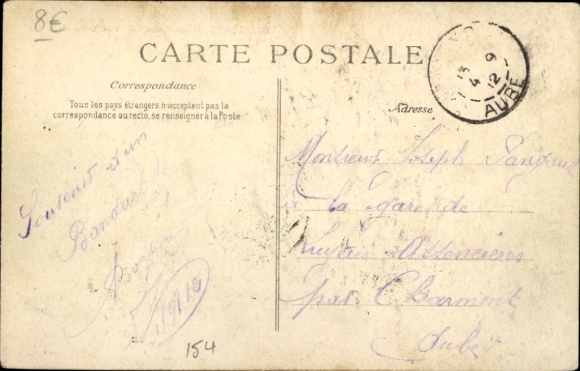 8€
CARTE POSTALE
Correspondance
Tous les pays étrangers n'acceptent pas la
correspondance au recto, se renseigner à la Poste
Adresse
13
4
12
9
AUBE
Souvenir d'un
Monsieur Joseph
à la gare de
par Charmont
Aube
154